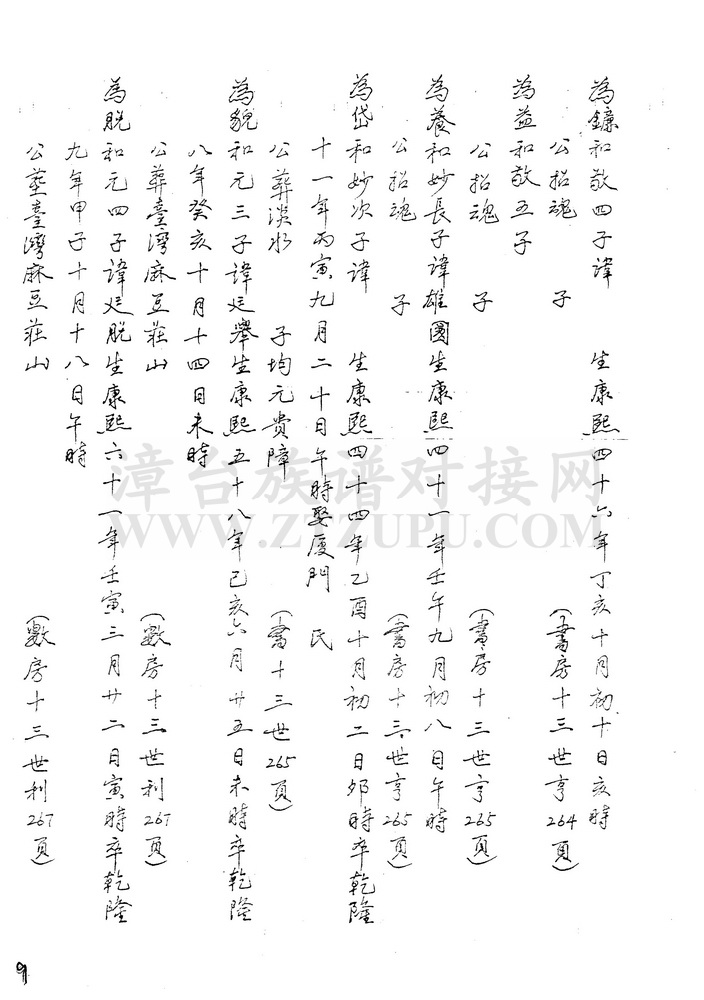 為鐮和敬四子諱　生康熙四十六年丁亥十月初十日亥時
公招魂　子　(書房十三世亨264頁)
為益和敬五子
公招魂　子　(書房十三世亨265頁)
為養和妙長子諱雄圜生康熙四十一年壬午九月初八日午時
公招魂　子　(書房十三世亨265頁)
為岱和妙次子諱　生康熙四十四年乙酉十月初二日卯時卒乾隆
十一年丙寅九月二十日午時娶厦門　民
公葬淡水　子均元貴障　(書十三世265頁)
為貌和元三子諱廷舉生康熙五十八年己亥六月廿五日未時卒乾隆
八年癸亥十月十四日未時
公葬臺灣麻豆莊山　(數房十三世利267頁)
為脫和元四子諱廷脫生康熙六十一年壬寅三月廿二日寅時卒乾隆
九年甲子十月十八日午時
公塟臺灣麻豆莊山　(數房十三世利267頁)
漳台族谱对接网
WWW.ZTZUPU.COM
9